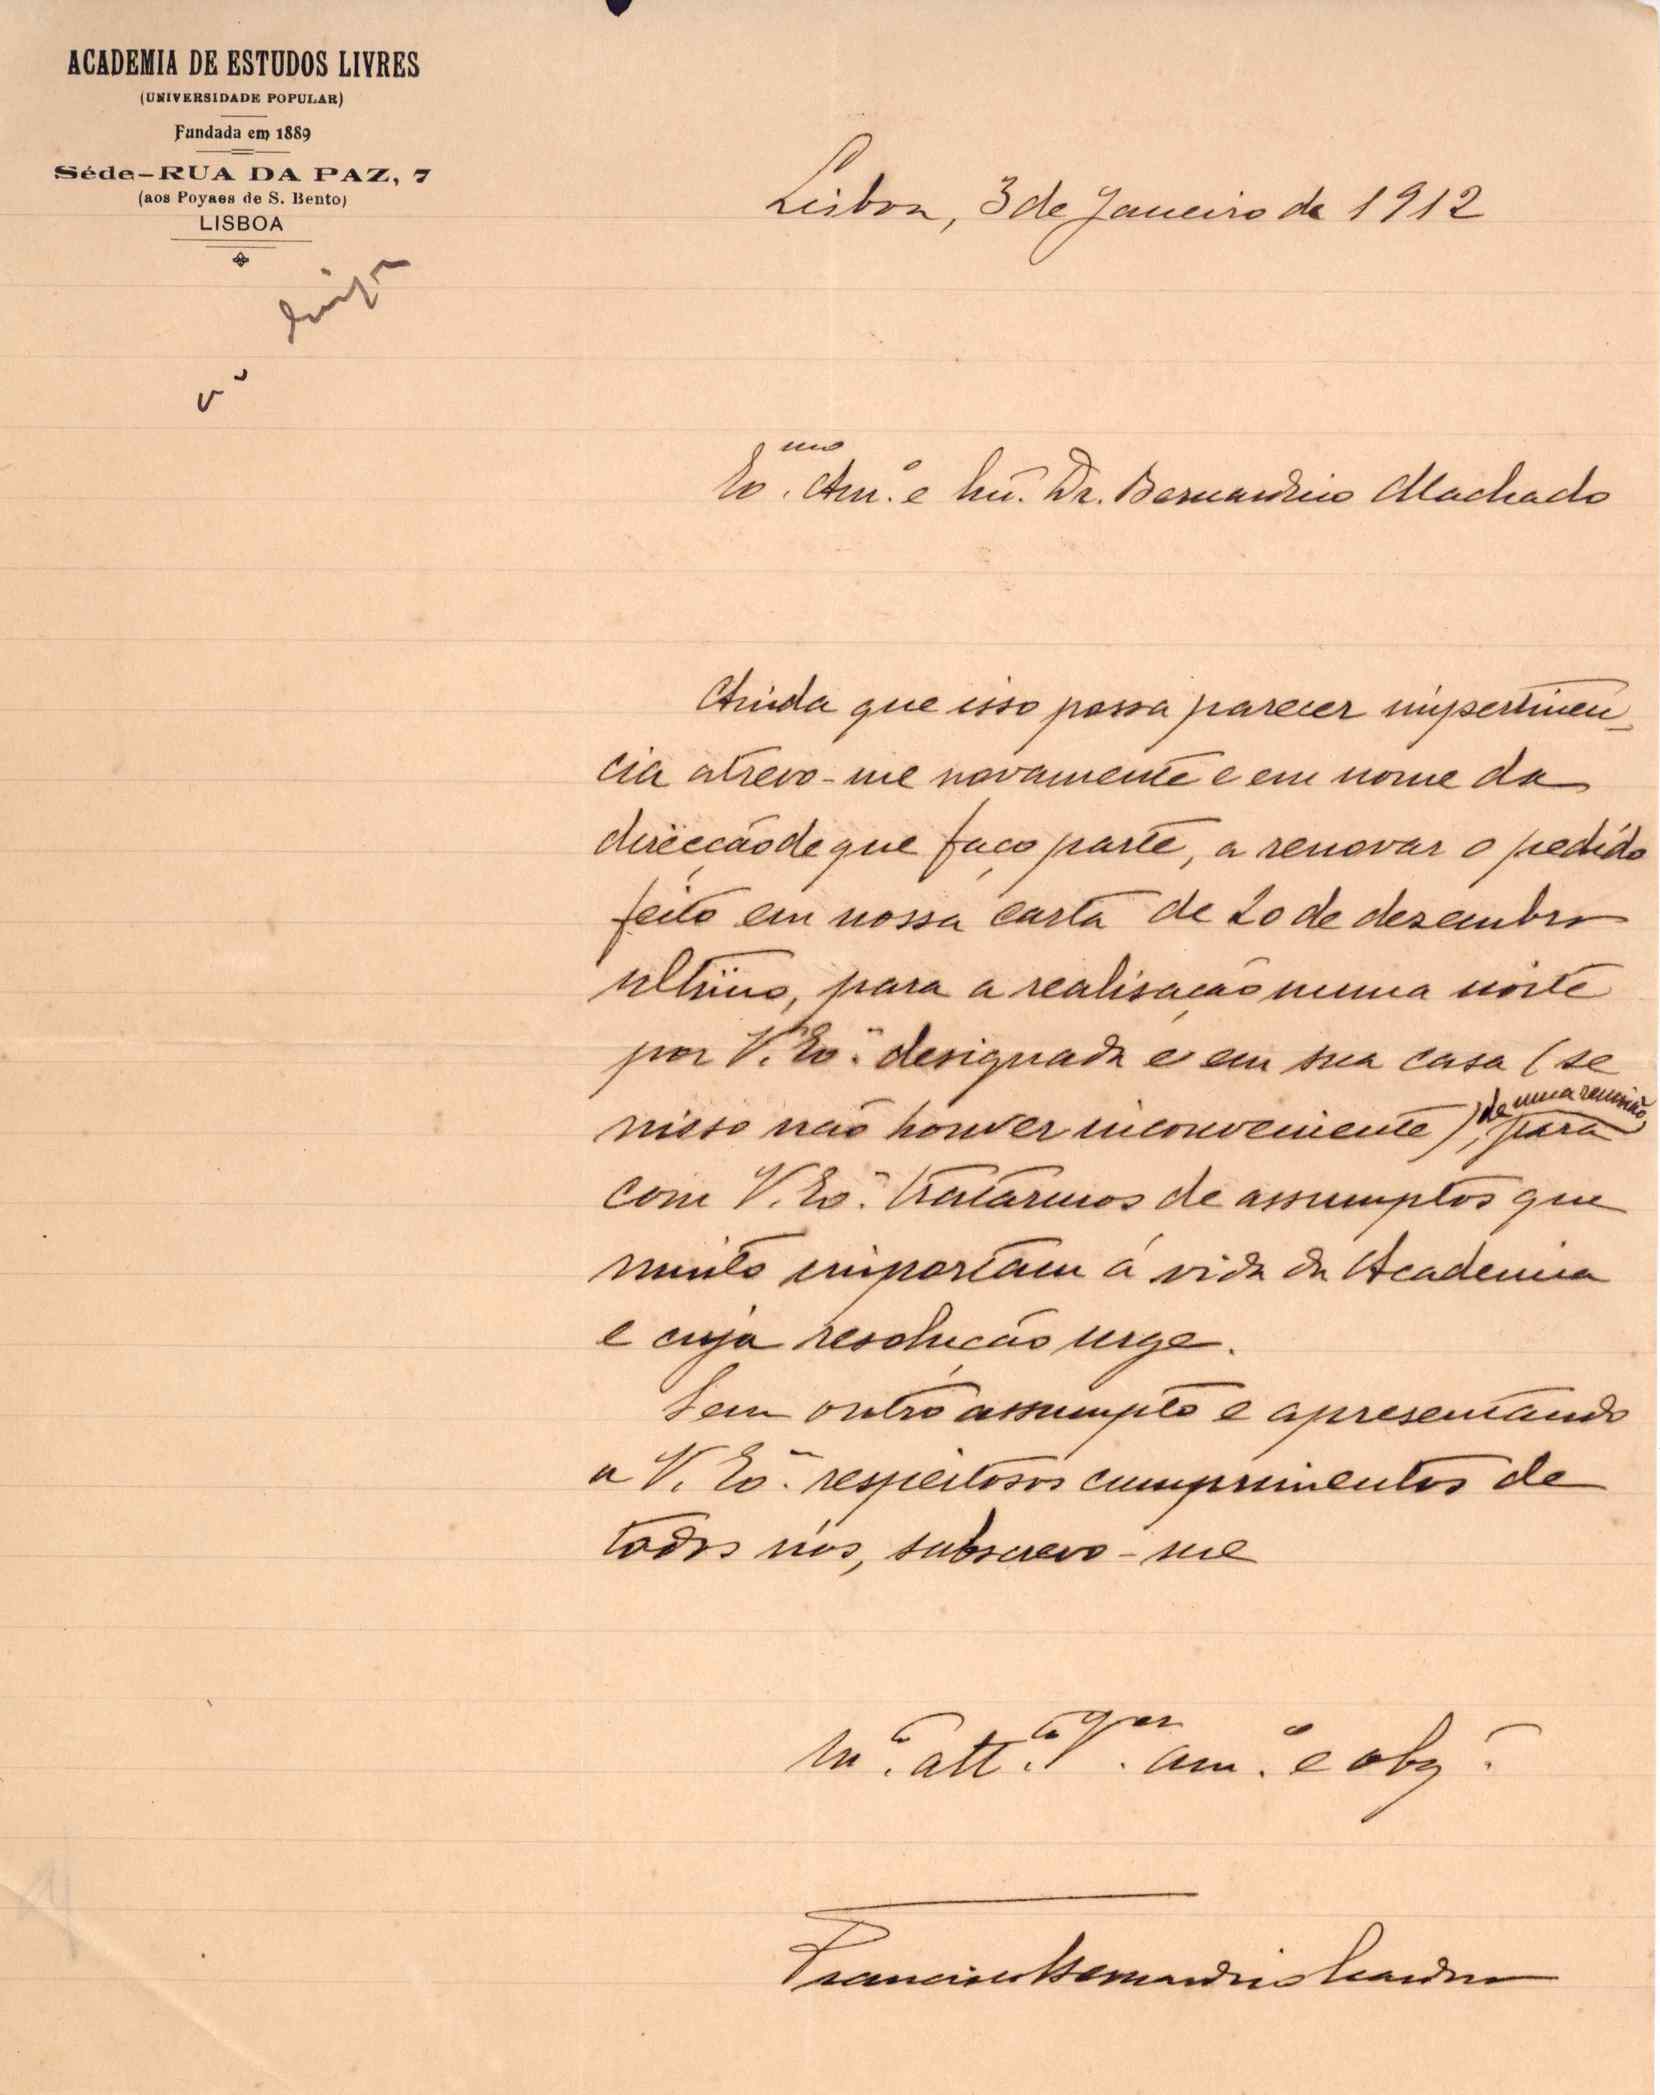 ACADEMIA DE ESTUDOS LIVRES
(UNIVERSIDADE POPULAR)
Fundada em 1889
Séde-RUA DA PAZ, 7
(aos Poyaes de S. Bento)
LISBOA
Lisboa, 3 de Janeiro de 1912
Ex.mo Am.o e Dr. Bernardino Machado
Ainda que isso possa parecer impertinen-
cia atrevo-me novamente e em nome da
direcção de que faço parte, a renovar o pedido
feito em nossa carta de 20 de dezembro
ultimo, para a realisação numa noite
por V. Ex.a designada e em sua casa (se
nisso não houver inconveniente), de uma reunião, para
com V. Ex.a tratármos de assumptos que
muito importam á vida da Academia
e cuja resolução urge.
Sem outro assumpto e apresentando
a V. Ex.a respeitosos cumprimentos de
todos nós, subscrevo-me
M.to att.to V.or am.o e obg.o
Francisco Bernardino